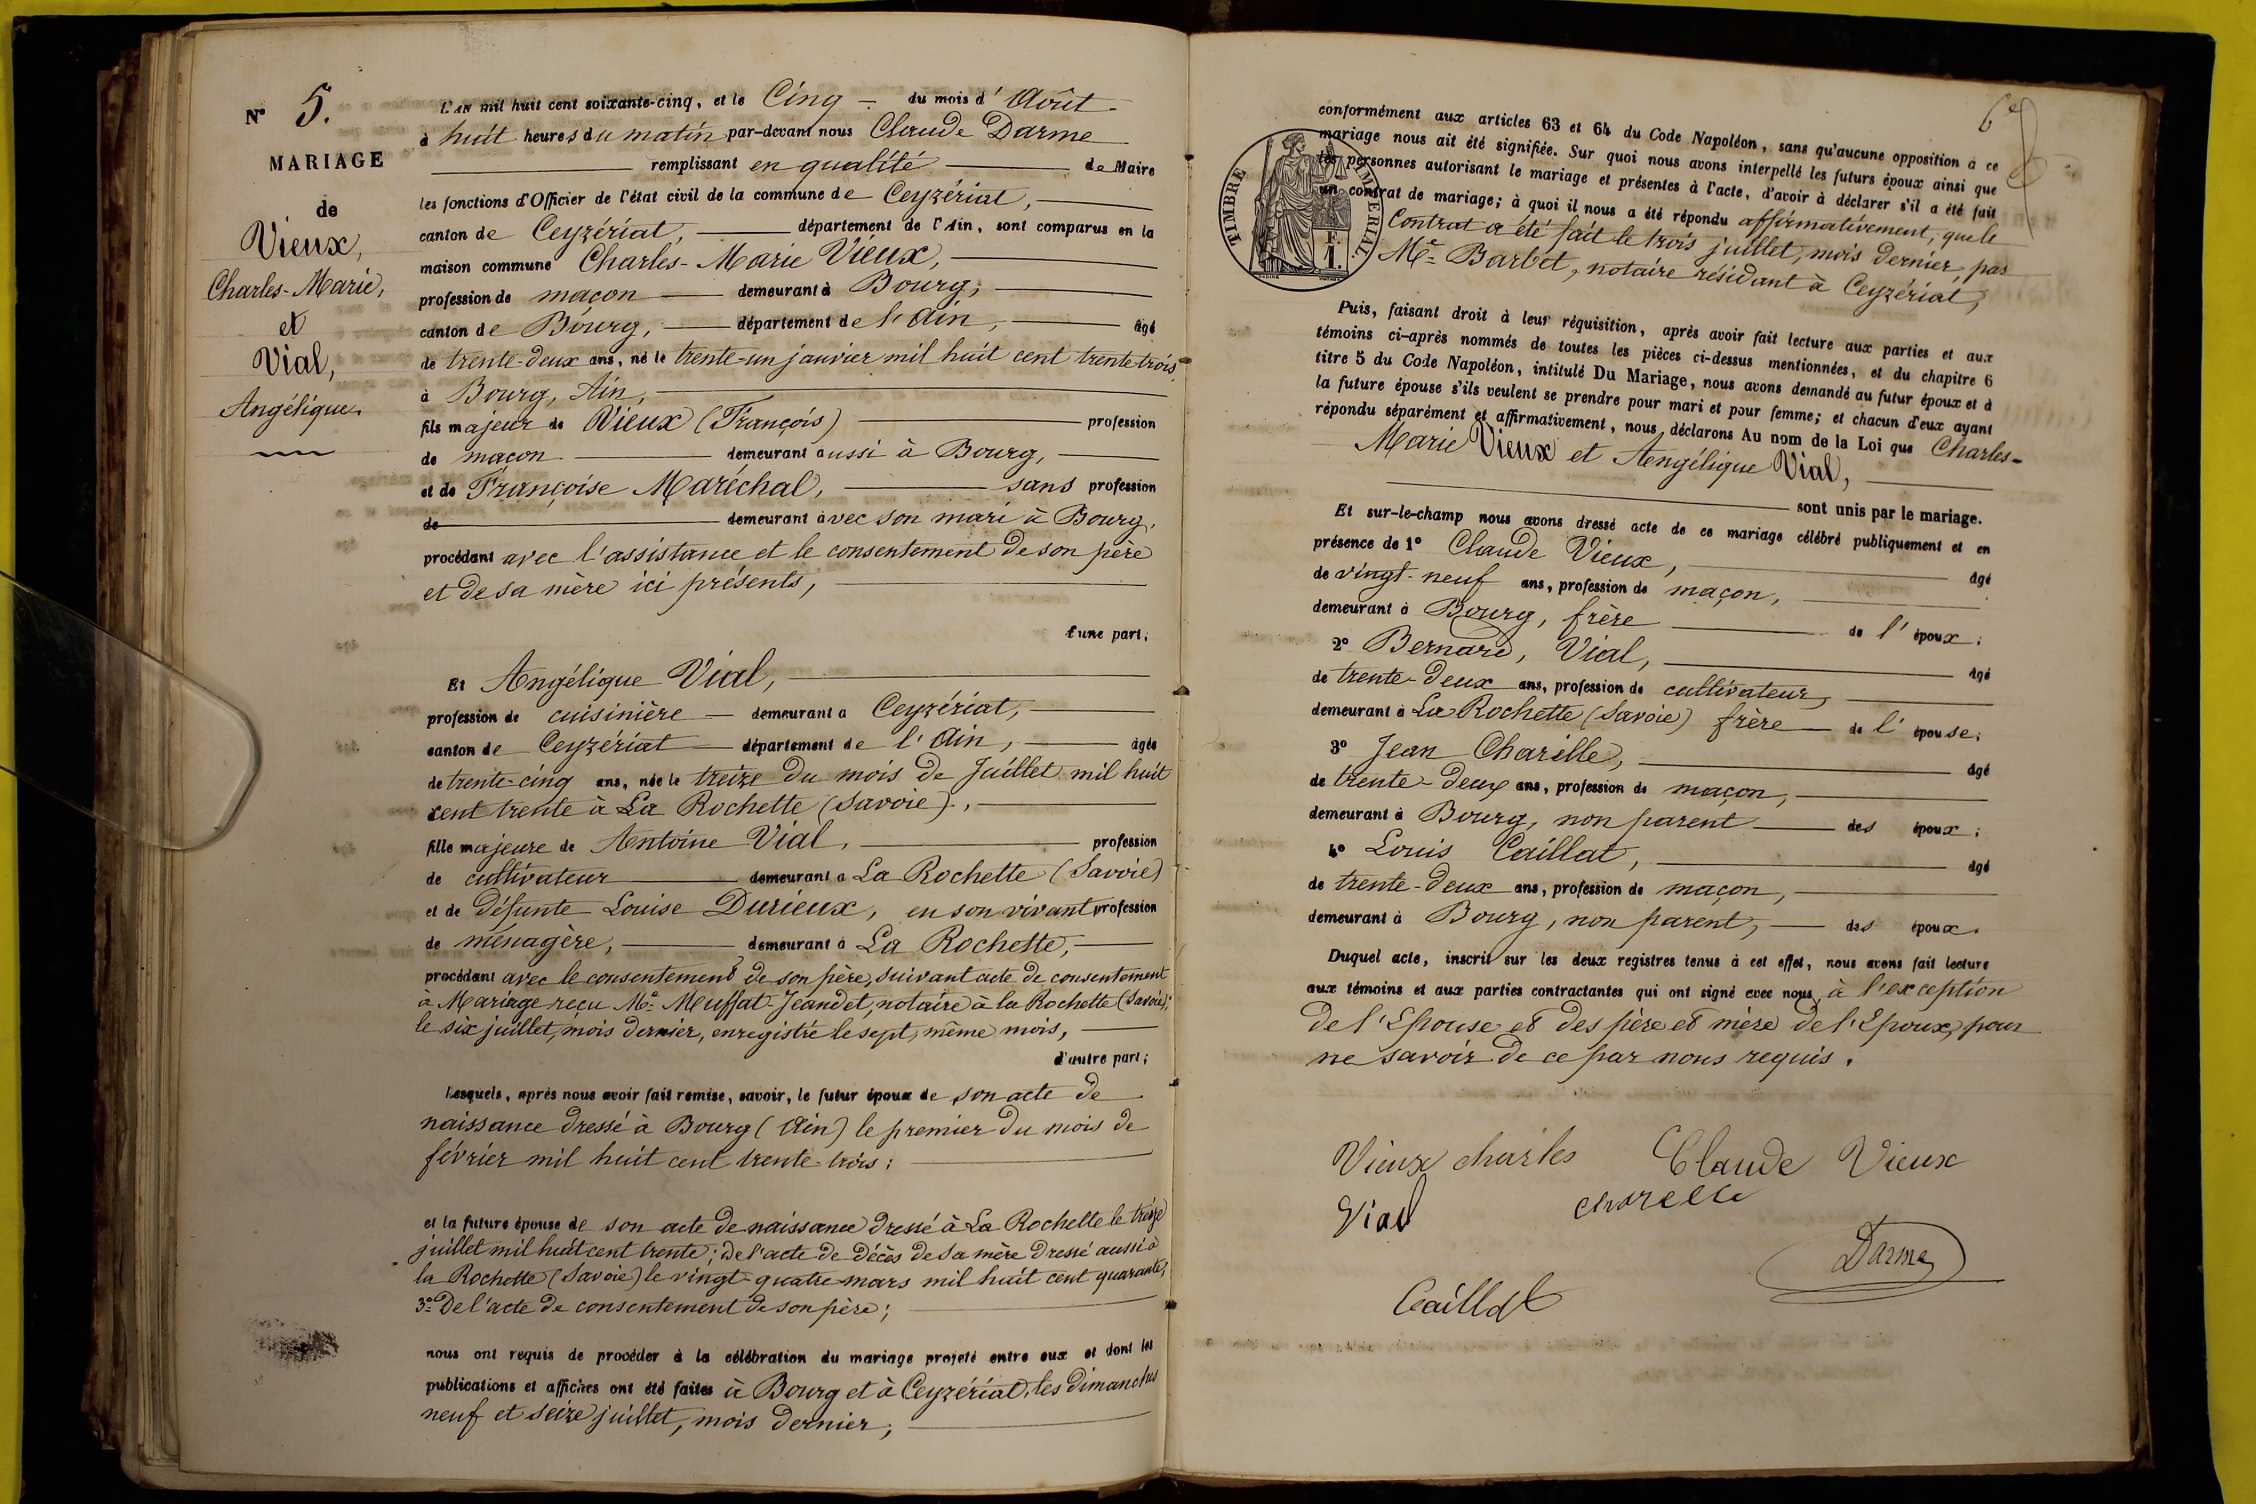 N° 5.
MARIAGE
de
Vieux,
Charles-Marie,
et
Vial,
Angélique.
L'AN mil huit cent soixante-cinq, et le Cinq du mois d'Août
à huit heures du matin par-devant nous Claude Darme
remplissant en qualité de Maire
les fonctions d'Officier de l'état civil de la commune de Ceyzériat,
canton de Ceyzériat, département de l'Ain, sont comparus en la
maison commune Charles-Marie Vieux,
profession de maçon demeurant à Bourg,
canton de Bourg, département de l'Ain, âgé
de trente-deux ans, né le trente-un janvier mil huit cent trente trois
à Bourg, Ain,
fils majeur de Vieux (François) profession
de maçon demeurant aussi à Bourg,
et de Françoise Maréchal, sans profession
de demeurant avec son mari à Bourg,
procédant avec l'assistance et le consentement de son père
et de sa mère ici présents,
d'une part;
Et Angélique Vial,
profession de cuisinière demeurant à Ceyzériat,
canton de Ceyzériat département de l'Ain, âgée
de trente-cinq ans, née le treize du mois de Juillet mil huit
cent trente à La Rochette (Savoie),
fille majeure de Antoine Vial, profession
de cultivateur demeurant à La Rochette (Savoie)
et de défunte Louise Durieux, en son vivant profession
de ménagère, demeurant à La Rochette,
procédant avec le consentement de son père, suivant acte de consentement
à Mariage reçu Me Muffat-Jeandet, notaire à la Rochette (Savoie),
le six juillet, mois dernier, enregistré le sept, même mois,
d'autre part;
Lesquels, après nous avoir fait remise, savoir, le futur époux de son acte de
naissance dressé à Bourg (Ain) le premier du mois de
février mil huit cent trente-trois;
et la future épouse de son acte de naissance dressé à La Rochette le treize
juillet mil huit cent trente; de l'acte de décès de sa mère dressé aussi à
la Rochette (Savoie) le vingt-quatre mars mil huit cent quarante;
3° De l'acte de consentement de son père;
nous ont requis de procéder à la célébration du mariage projeté entre eux et dont les
publications et affiches ont été faites à Bourg et à Ceyzériat, les dimanches
neuf et seize juillet, mois dernier;
6e
TIMBRE IMPÉRIAL
F. 1.
conformément aux articles 63 et 64 du Code Napoléon, sans qu'aucune opposition à ce
mariage nous ait été signifiée. Sur quoi nous avons interpellé les futurs époux ainsi que
les personnes autorisant le mariage et présentes à l'acte, d'avoir à déclarer s'il a été fait
un contrat de mariage; à quoi il nous a été répondu affirmativement, que le
Contrat a été fait le trois juillet, mois dernier, par
Me Barbet, notaire résidant à Ceyzériat,
Puis, faisant droit à leur réquisition, après avoir fait lecture aux parties et aux
témoins ci-après nommés de toutes les pièces ci-dessus mentionnées, et du chapitre 6
titre 5 du Code Napoléon, intitulé Du Mariage, nous avons demandé au futur époux et à
la future épouse s'ils veulent se prendre pour mari et pour femme; et chacun d'eux ayant
répondu séparément et affirmativement, nous déclarons Au nom de la Loi que Charles-
Marie Vieux et Angélique Vial,
sont unis par le mariage.
Et sur-le-champ nous avons dressé acte de ce mariage célébré publiquement et en
présence de 1° Claude Vieux, âgé
de vingt-neuf ans, profession de maçon,
demeurant à Bourg, frère de l'époux;
2° Bernard, Vial, âgé
de trente-deux ans, profession de cultivateur,
demeurant à La Rochette (Savoie) frère de l'épouse;
3° Jean Charille, âgé
de trente-deux ans, profession de maçon,
demeurant à Bourg, non parent des époux;
4° Louis Caillat, âgé
de trente-deux ans, profession de maçon,
demeurant à Bourg, non parent, des époux.
Duquel acte, inscrit sur les deux registres tenus à cet effet, nous avons fait lecture
aux témoins et aux parties contractantes qui ont signé avec nous, à l'exception
de l'Epouse et des père et mère de l'Epoux, pour
ne savoir de ce par nous requis.
Vieux charles Claude Vieux
Vial
Darme
Caillat